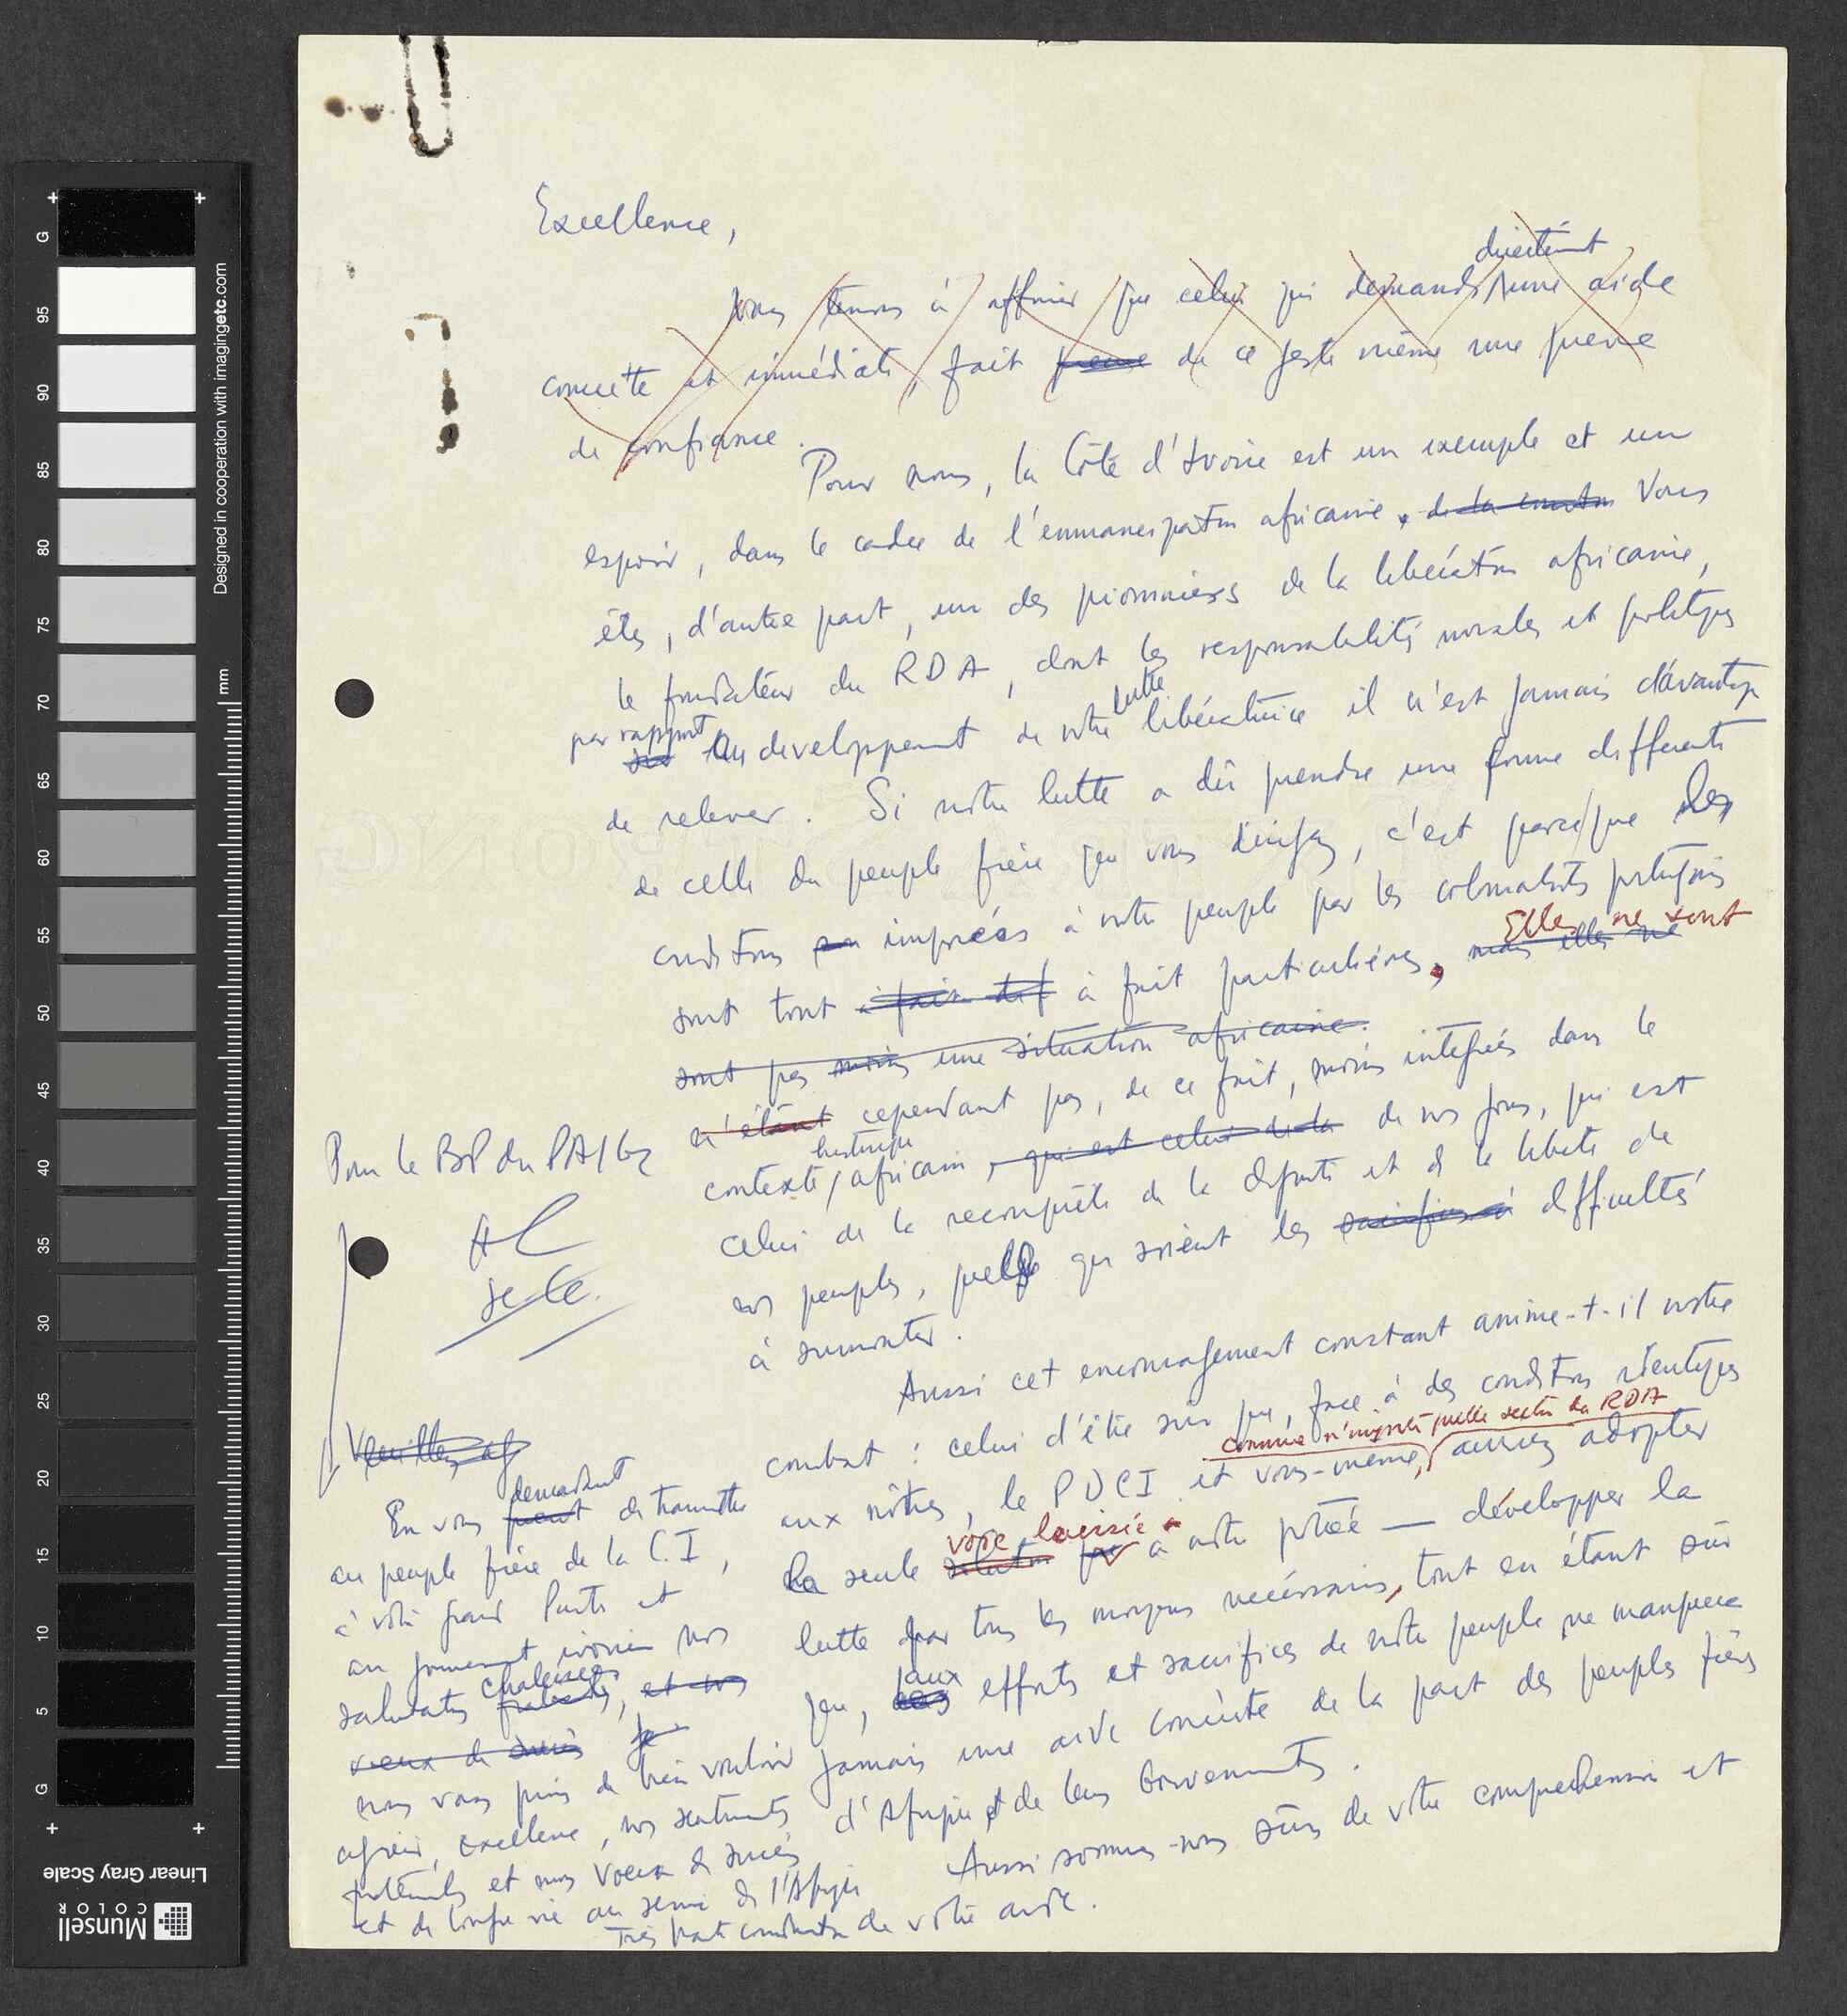 Excellence,
directement
Nous tenons à affirmer que celui qui demande une aide
concrète et immédiate, fait preuve de ce geste même une preuve
de confiance.
Pour nous, la Côte d'Ivoire est un exemple et un
espoir, dans le cadre de l'emmancipation africaine, de la Vous
êtes, d'autre part, un des pionniers de la libération africaine,
le fondateur du RDA, dont les responsabilités morales et politiques
par rapport au developpement de notre lutte libératrice il n'est jamais davantage
de relever. Si notre lutte a dû prendre une forme differente
de celle du peuple frère que vous dirigez, c'est parce que les
conditions imposées à notre peuple par les colonialistes portugais
sont tout à fait particulières. mais elles ne Elles ne sont
sont pas moins une situation africaine.
n'étant cependant pas, de ce fait, moins integrées dans le
contexte historique africain, qui est celui de la de nos jours, qui est
celui de la reconquête de la dignité et de la liberté de
nos peuples, quelles que soient les difficultés
à surmonter.
Aussi cet encouragement constant anime-t-il notre
combat : celui d'être sûr que, face à des conditions identiques
comme n'importe quelle section du RDA
aux nôtres, le PDCI et vous-même, auriez adopter
la seule solution voie laissée à notre portée — développer la
lutte par tous les moyens nécéssaires, tout en étant sûr
que, aux efforts et sacrifices de notre peuple ne manquera
jamais une aide concrète de la part des peuples frères
d'Afrique et de leurs Gouvernements.
Aussi sommes-nous sûrs de votre compréhension et
de votre aide.
Pour le BP du PAIGC
AC
Veuillez ag
En vous demandant de transmettre
au peuple frère de la C.I,
à votre grand Parti et
au gouvernement ivoirien nos
salutations chaleureuses fraternelles, et nos
voeux de succès
nous vous prions de bien vouloir
agréer, excellence, nos sentiments
fraternels et nos voeux de succès
et de longue vie au service de l'Afrique
Très haute considération